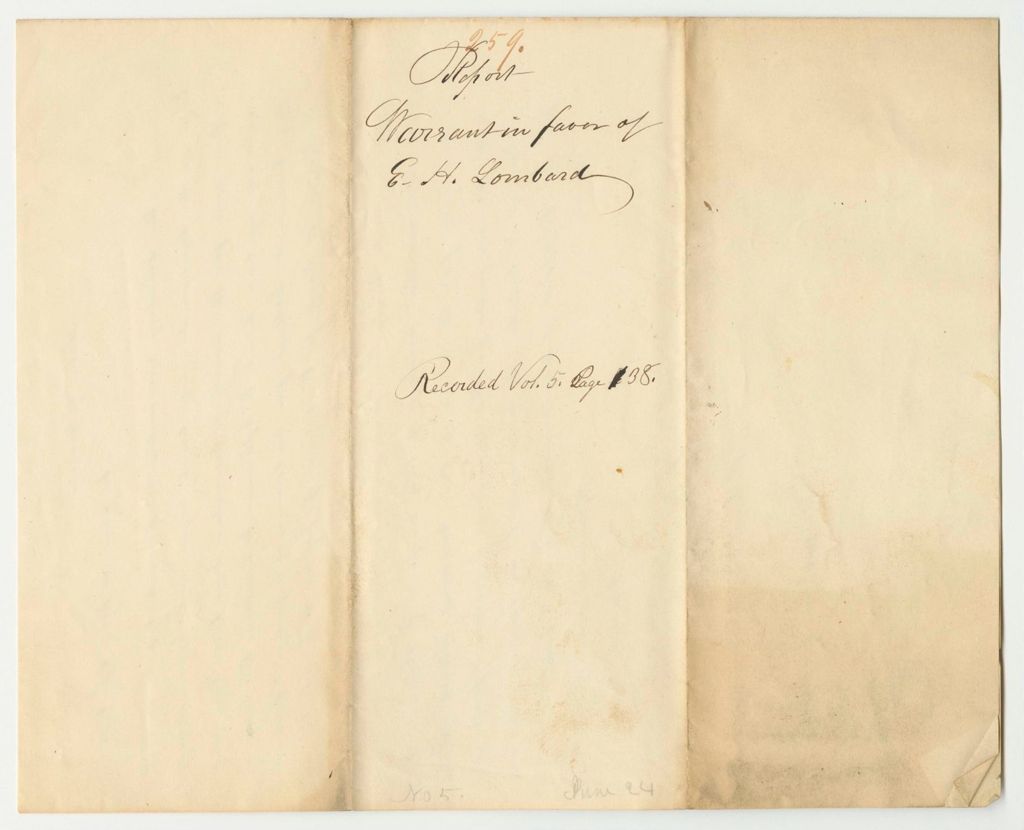 259.
Report
Warrant in favor of
E. H. Lombard
Recorded Vol. 5. Page 138.
No 5. June 24